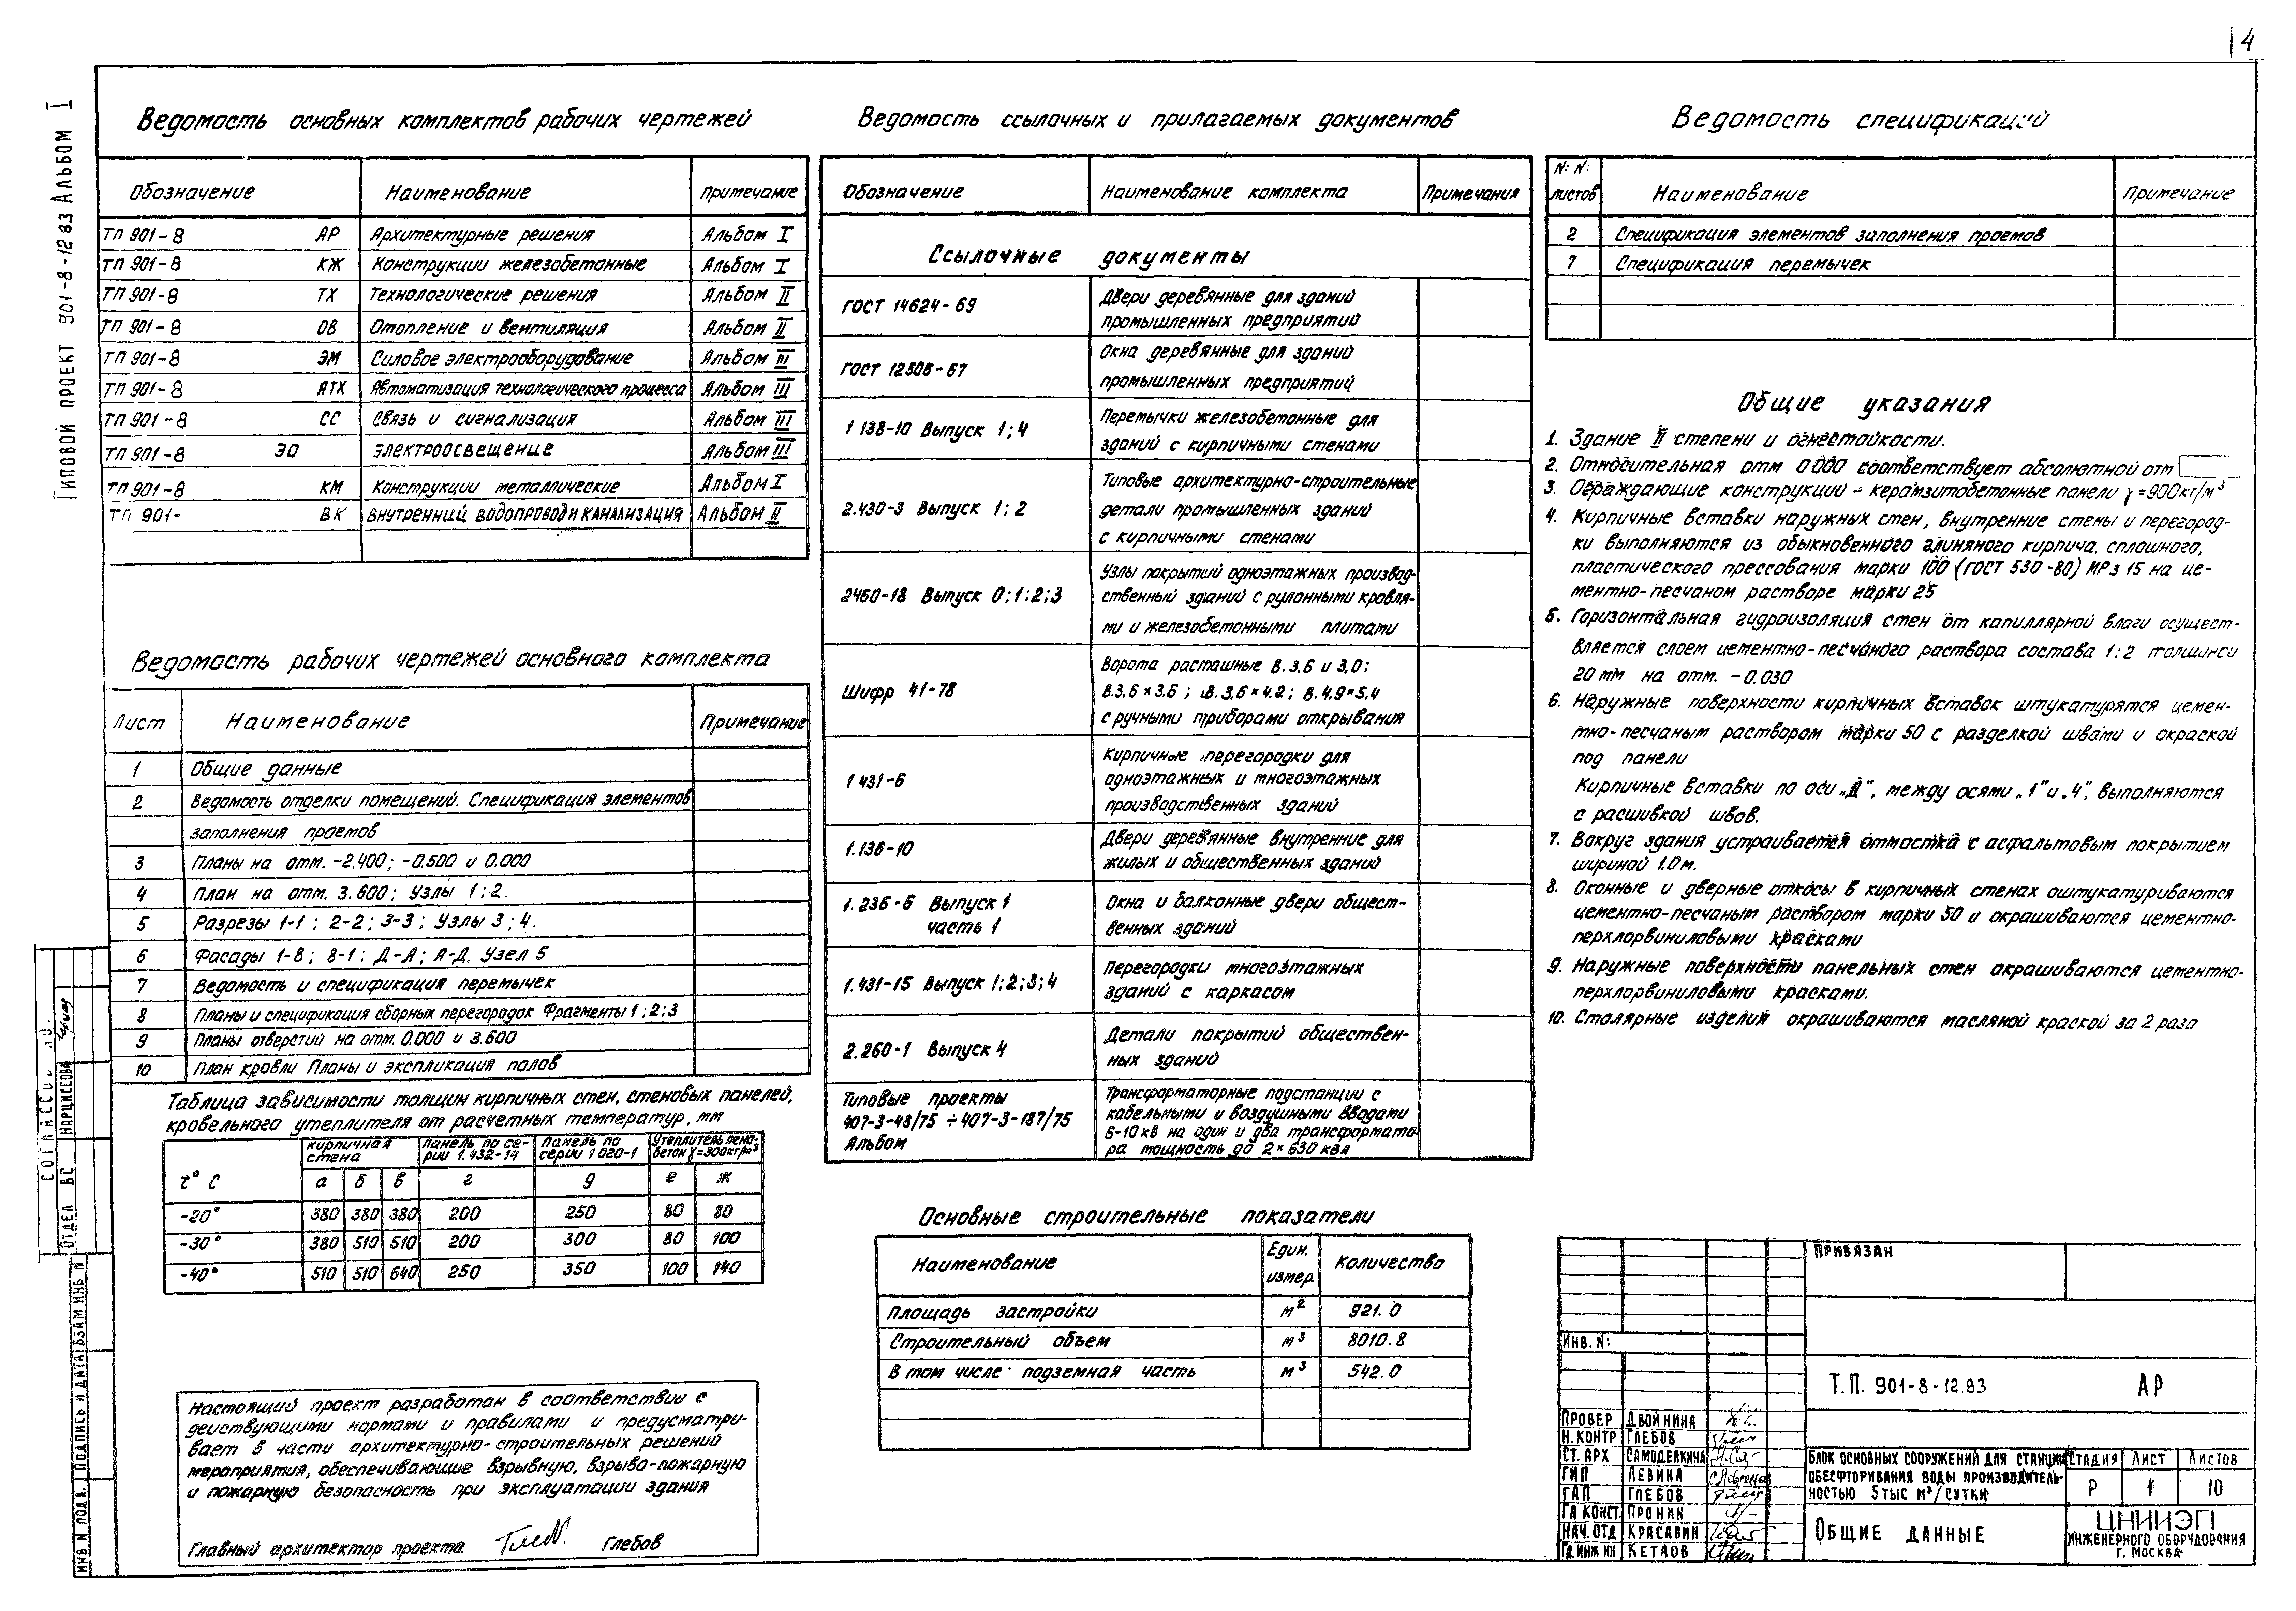 4
Типовой проект 901-8-12.83 Альбом I
Ведомость основных комплектов рабочих чертежей
Обозначение Наименование Примечание
ТП 901-8 АР Архитектурные решения Альбом I
ТП 901-8 КЖ Конструкции железобетонные Альбом I
ТП 901-8 ТХ Технологические решения Альбом II
ТП 901-8 ОВ Отопление и вентиляция Альбом II
ТП 901-8 ЭМ Силовое электрооборудование Альбом III
ТП 901-8 АТХ Автоматизация технологического процесса Альбом III
ТП 901-8 СС Связь и сигнализация Альбом III
ТП 901-8 ЭО Электроосвещение Альбом III
ТП 901-8 КМ Конструкции металлические Альбом I
ТП 901- ВК Внутренний водопровод и канализация Альбом II
Ведомость рабочих чертежей основного комплекта
Лист Наименование Примечание
1 Общие данные
2 Ведомость отделки помещений. Спецификация элементов
заполнения проемов
3 Планы на отм. -2.400; -0.500 и 0.000
4 План на отм. 3.600; Узлы 1; 2.
5 Разрезы 1-1; 2-2; 3-3; Узлы 3; 4.
6 Фасады 1-8; 8-1; Д-А; А-Д. Узел 5
7 Ведомость и спецификация перемычек
8 Планы и спецификация сборных перегородок Фрагменты 1; 2; 3
9 Планы отверстий на отм. 0.000 и 3.600
10 План кровли Планы и экспликация полов
Таблица зависимости толщин кирпичных стен, стеновых панелей,
кровельного утеплителя от расчетных температур, мм
t° C
кирпичная стена
панель по серии 1.432-14
панель по серии 1 020-1
Утеплитель пенобетон γ=300кг/м³
а б в г д е ж
-20° 380 380 380 200 250 80 80
-30° 380 510 510 200 300 80 100
-40° 510 510 640 250 350 100 140
Настоящий проект разработан в соответствии с
действующими нормами и правилами и предусматри-
вает в части архитектурно-строительных решений
мероприятия, обеспечивающие взрывную, взрыво-пожарную
и пожарную безопасность при эксплуатации здания
Главный архитектор проекта Глебов
Ведомость ссылочных и прилагаемых документов
Обозначение Наименование комплекта Примечания
Ссылочные документы
ГОСТ 14624-69 Двери деревянные для зданий
промышленных предприятий
ГОСТ 12506-67 Окна деревянные для зданий
промышленных предприятий
1 138-10 Выпуск 1; 4 Перемычки железобетонные для
зданий с кирпичными стенами
2.430-3 Выпуск 1; 2 Типовые архитектурно-строительные
детали промышленных зданий
с кирпичными стенами
2460-18 Выпуск 0; 1; 2; 3 Узлы покрытий одноэтажных производ-
ственный зданий с рулонными кровля-
ми и железобетонными плитами
Шифр 41-78 Ворота распашные В.3,6 и 3,0;
В.3,6×3,6; В.3,6×4.2; В.4,9×5,4
с ручными приборами открывания
1 431-6 Кирпичные перегородки для
одноэтажных и многоэтажных
производственных зданий
1.136-10 Двери деревянные внутренние для
жилых и общественных зданий
1.236-6 Выпуск 1 Окна и балконные двери общест-
часть 1 венных зданий
1.431-15 Выпуск 1; 2; 3; 4 Перегородки многоэтажных
зданий с каркасом
2.260-1 Выпуск 4 Детали покрытий обществен-
ных зданий
Типовые проекты Трансформаторные подстанции с
407-3-48/75 ÷ 407-3-187/75 кабельными и воздушными вводами
Альбом 6-10 кв на один и два трансформато-
ра мощность до 2×630 ква
Основные строительные показатели
Наименование Един. измер. Количество
Площадь застройки м² 921.0
Строительный объем м³ 8010.8
В том числе: подземная часть м³ 542.0
Ведомость спецификаций
N: N: листов Наименование Примечание
2 Спецификация элементов заполнения проемов
7 Спецификация перемычек
Общие указания
1. Здание II степени и огнестойкости.
2. Относительная отм 0 000 соответствует абсолютной отм
3. Ограждающие конструкции - керамзитобетонные панели γ=900кг/м³
4. Кирпичные вставки наружных стен, внутренние стены и перегород-
ки выполняются из обыкновенного глиняного кирпича, сплошного,
пластического прессования марки 100 (ГОСТ 530-80) МРз 15 на це-
ментно-песчаном растворе марки 25
5. Горизонтальная гидроизоляция стен от капиллярной влаги осущест-
вляется слоем цементно-песчаного раствора состава 1:2 толщиной
20 мм на отм. -0.030
6. Наружные поверхности кирпичных вставок штукатурятся цемен-
тно-песчаным раствором марки 50 с разделкой швами и окраской
под панели
Кирпичные вставки по оси „Д", между осями „1" и „4", выполняются
с расшивкой швов.
7. Вокруг здания устраивается отмостка с асфальтовым покрытием
шириной 1.0 м.
8. Оконные и дверные откосы в кирпичных стенах оштукатуриваются
цементно-песчаным раствором марки 50 и окрашиваются цементно-
перхлорвиниловыми красками
9. Наружные поверхности панельных стен окрашиваются цементно-
перхлорвиниловыми красками.
10. Столярные изделия окрашиваются масляной краской за 2 раза
Привязан
Инв. N:
Т.П. 901-8-12.83 АР
Провер Двойнина
Н. контр Глебов
Ст. арх Самоделкина
ГИП Левина
ГАП Глебов
Гл конст Пронин
Нач. отд Красавин
Гл инж ин Кетаов
Блок основных сооружений для станции
обесфторивания воды производитель-
ностью 5 тыс м³/сутки
Стадия Лист Листов
Р 1 10
Общие данные
ЦНИИЭП
инженерного оборудования
г. Москва
Согласов
Отдел ВС Нарциссова
Инв N подл. Подпись и дата Взам инв N